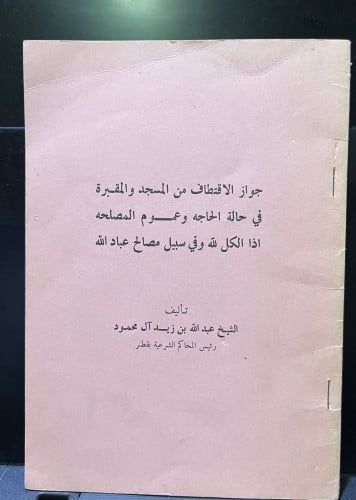 جواز الاقتطاف من المسجد والمقبرة
في حالة الحاجه وعمـــوم المصلحه
اذا الكل لله وفي سبيل مصالح عباد الله
تـأليف
الشيخ عبد الله بن زيـد آل محمـود
رئيس المحاكم الشرعية بقطر